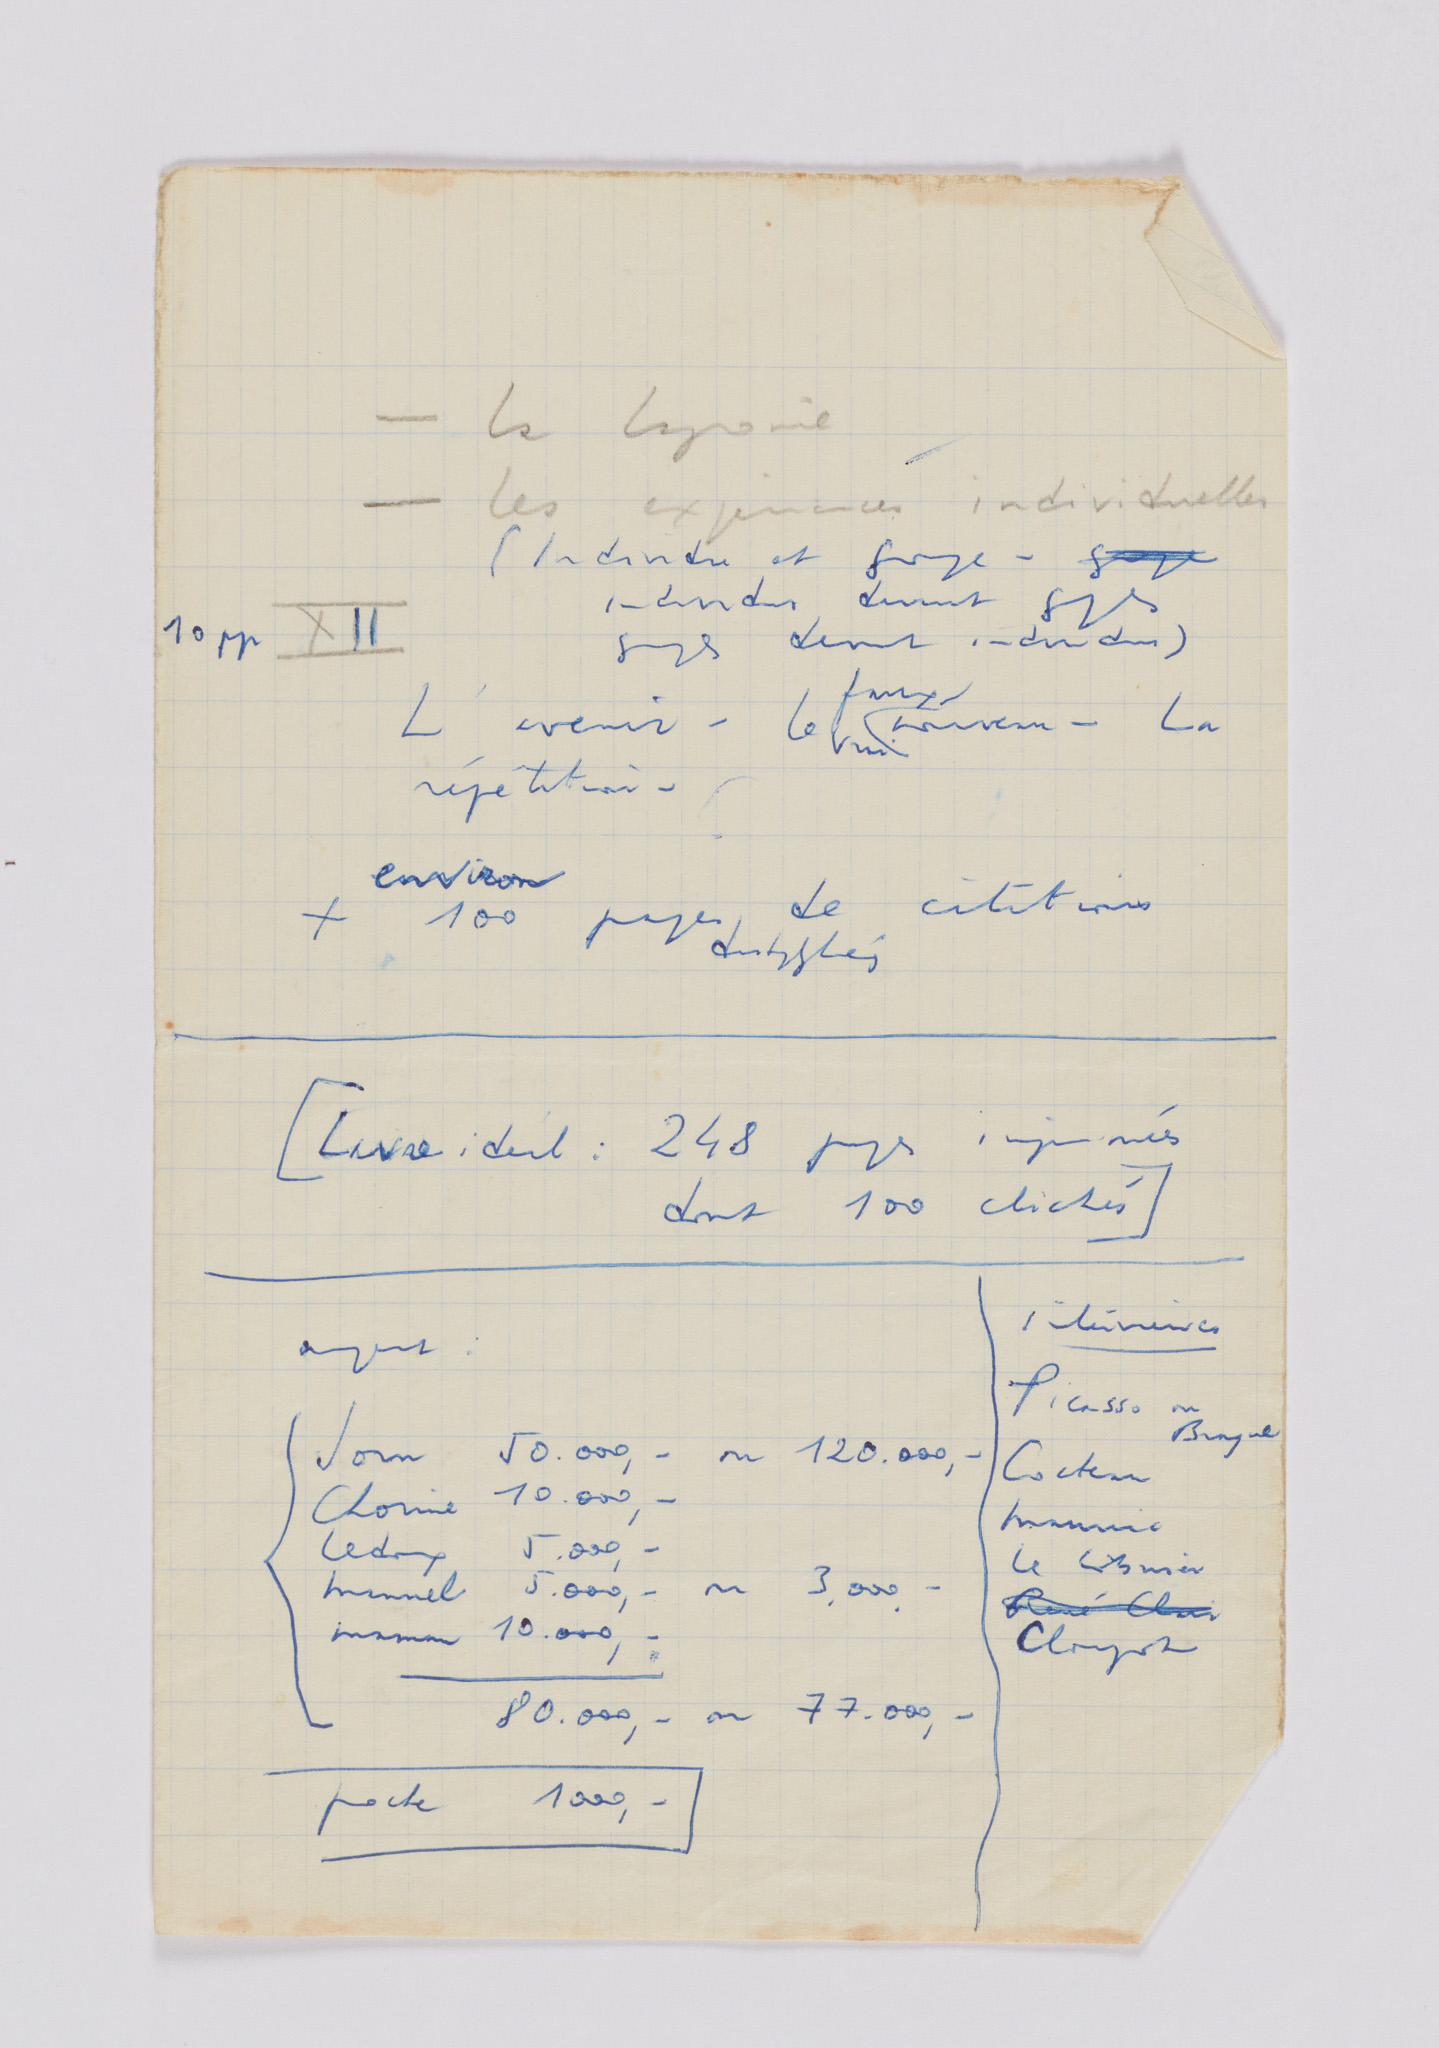 — La
— Les expériences individuelles
(Individu et groupe – groupe
individus devant groupes
10 pp XII
groupes devant individus)
faux
L'avenir – Le nouveau – La
vrai
répétition –
environ
+ 100 pages de citations
[Livre idéal : 248 pages imprimées
dont 100 clichés]
argent :
Jorn 50.000,– ou 120.000,–
10.000,–
Ledoux 5.000,–
manuel 5.000,– ou 3.000,–
maman 10.000,–
80.000,– ou 77.000,–
pacte 1000,–
Picasso ou
Braque
Cocteau
Mauriac
Le Corbusier
René Clair
Clouzot